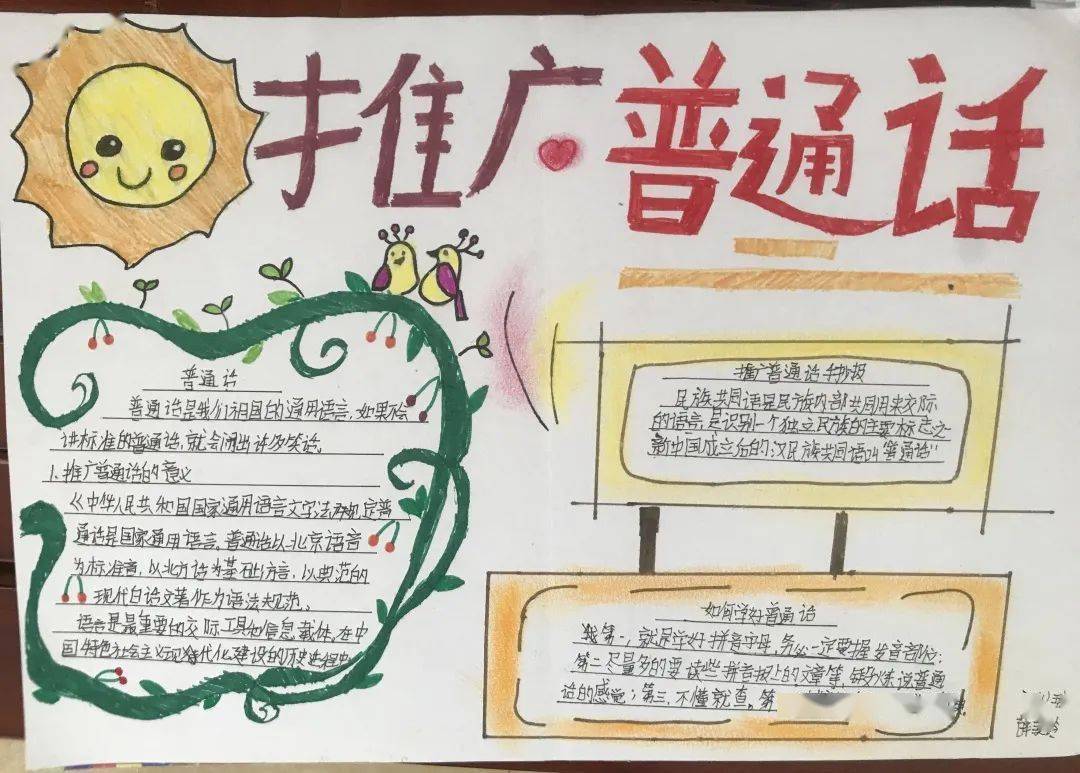 推广普通话
普通话
普通话是我们祖国的通用语言,如果不会
讲标准的普通话,就会闹出许多笑话。
1、推广普通话的意义
《中华人民共和国国家通用语言文字法》规定普
通话是国家通用语言。普通话以北京语音
为标准音,以北方话为基础方言,以典范的
现代白话文著作为语法规范。
语言是最重要的交际工具和信息载体。在中
国特色社会主义现代化建设的历史进程中
推广普通话手抄报
民族共同语是民族内部共同用来交际
的语言,是识别一个独立民族的主要标志之
新中国成立后的汉民族共同语叫"普通话"
如何学好普通话
第一,就是学好拼音字母,务必一定要握发音部位;
第二尽量多的要读些拼音报上的文章等,锻炼说普通
话的感觉;第三,不懂就查。第